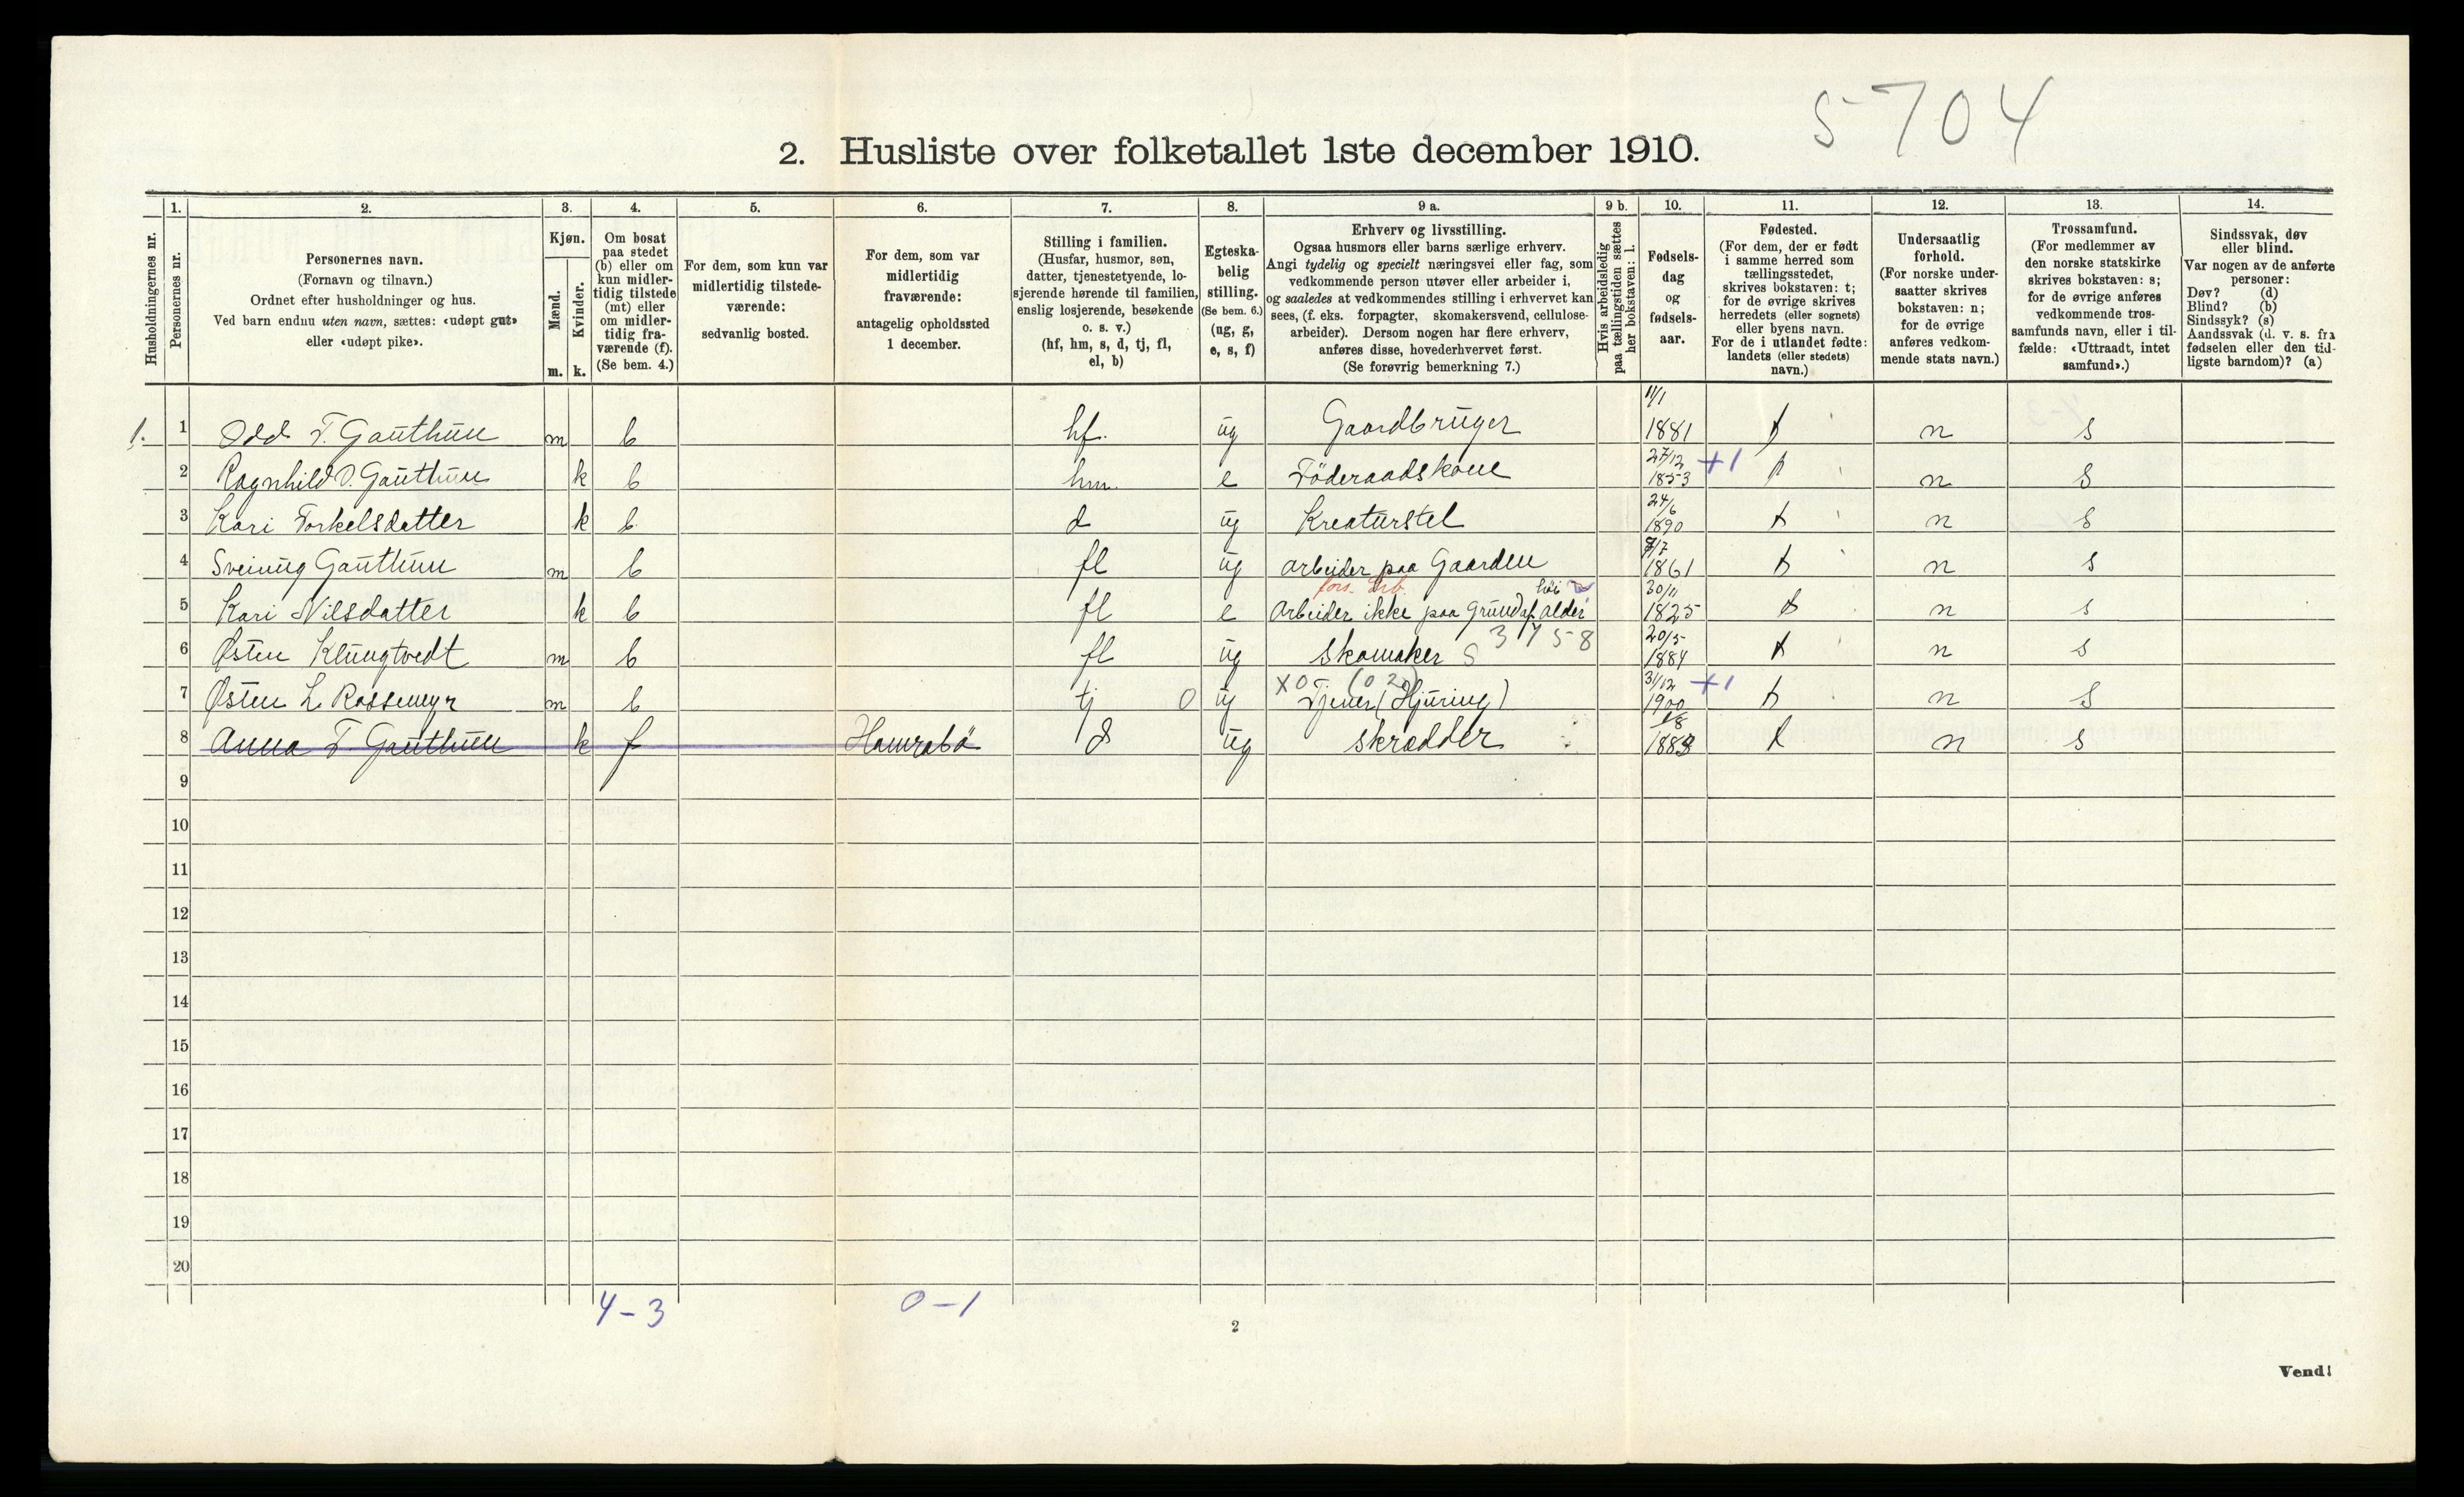 5704
2. Husliste over folketallet 1ste december 1910.
Husholdningernes nr.
1. Personernes nr.
2. Personernes navn.
(Fornavn og tilnavn.)
Ordnet efter husholdninger og hus.
Ved barn endnu uten navn, sættes: «udøpt gut»
eller «udøpt pike».
3. Kjøn.
Mænd. m.
Kvinder. k.
4. Om bosat
paa stedet
(b) eller om
kun midler-
tidig tilstede
(mt) eller
om midler-
tidig fra-
værende (f).
(Se bem. 4.)
5. For dem, som kun var
midlertidig tilstede-
værende:
sedvanlig bosted.
6. For dem, som var
midlertidig
fraværende:
antagelig opholdssted
1 december.
7. Stilling i familien.
(Husfar, husmor, søn,
datter, tjenestetyende, lo-
sjerende hørende til familien,
enslig losjerende, besøkende
o. s. v.)
(hf, hm, s, d, tj, fl,
el, b)
8. Egteska-
belig
stilling.
(Se bem. 6.)
(ug, g,
e, s, f)
9 a. Erhverv og livsstilling.
Ogsaa husmors eller barns særlige erhverv.
Angi tydelig og specielt næringsvei eller fag, som
vedkommende person utøver eller arbeider i,
og saaledes at vedkommendes stilling i erhvervet kan
sees, (f. eks. forpagter, skomakersvend, cellulose-
arbeider). Dersom nogen har flere erhverv,
anføres disse, hovederhvervet først.
(Se forøvrig bemerkning 7.)
9 b. Hvis arbeidsledig
paa tællingstiden sættes
her bokstaven: l.
10. Fødsels-
dag
og
fødsels-
aar.
11. Fødested.
(For dem, der er født
i samme herred som
tællingsstedet,
skrives bokstaven: t;
for de øvrige skrives
herredets (eller sognets)
eller byens navn.
For de i utlandet fødte:
landets (eller stedets)
navn.)
12. Undersaatlig
forhold.
(For norske under-
saatter skrives
bokstaven: n;
for de øvrige
anføres vedkom-
mende stats navn.)
13. Trossamfund.
(For medlemmer av
den norske statskirke
skrives bokstaven: s;
for de øvrige anføres
vedkommende tros-
samfunds navn, eller i til-
fælde: «Uttraadt, intet
samfund».)
14. Sindssvak, døv
eller blind.
Var nogen av de anførte
personer:
Døv? (d)
Blind? (b)
Sindssyk? (s)
Aandssvak (d. v. s. fra
fødselen eller den tid-
ligste barndom)? (a)
1. 1 Odd T. Gauthun m b hf. ug Gaardbruger 11/1 1881 t n s
2 Ragnhild O. Gauthun k b hm. e Föderaadskone 27/12 1853 +1 t n s
3 Kari Torkelsdatter k b d ug Kreaturstel 24/6 1890 t n s
4 Sveinug Gauthun m b fl ug arbeider paa Gaarden 1861 t n s
fors.
5 Kari Nilsdatter k b fl e Arbeider ikke paa Grund af høi alder 30/11 1825 t n s
6 Østen Klungtvedt m b fl ug Skomaker S 3758 20/5 1884 t n s
X0 (02)
7 Østen L Rossemyr m b tj 0 ug Tjener (Hjuring) 31/12 1900 +1 t n s
8 Anna T. Gauthun k f Hamrabö d ug skrædder t n s
9
10
11
12
13
14
15
16
17
18
19
20
4-3 0-1
2
Vend!